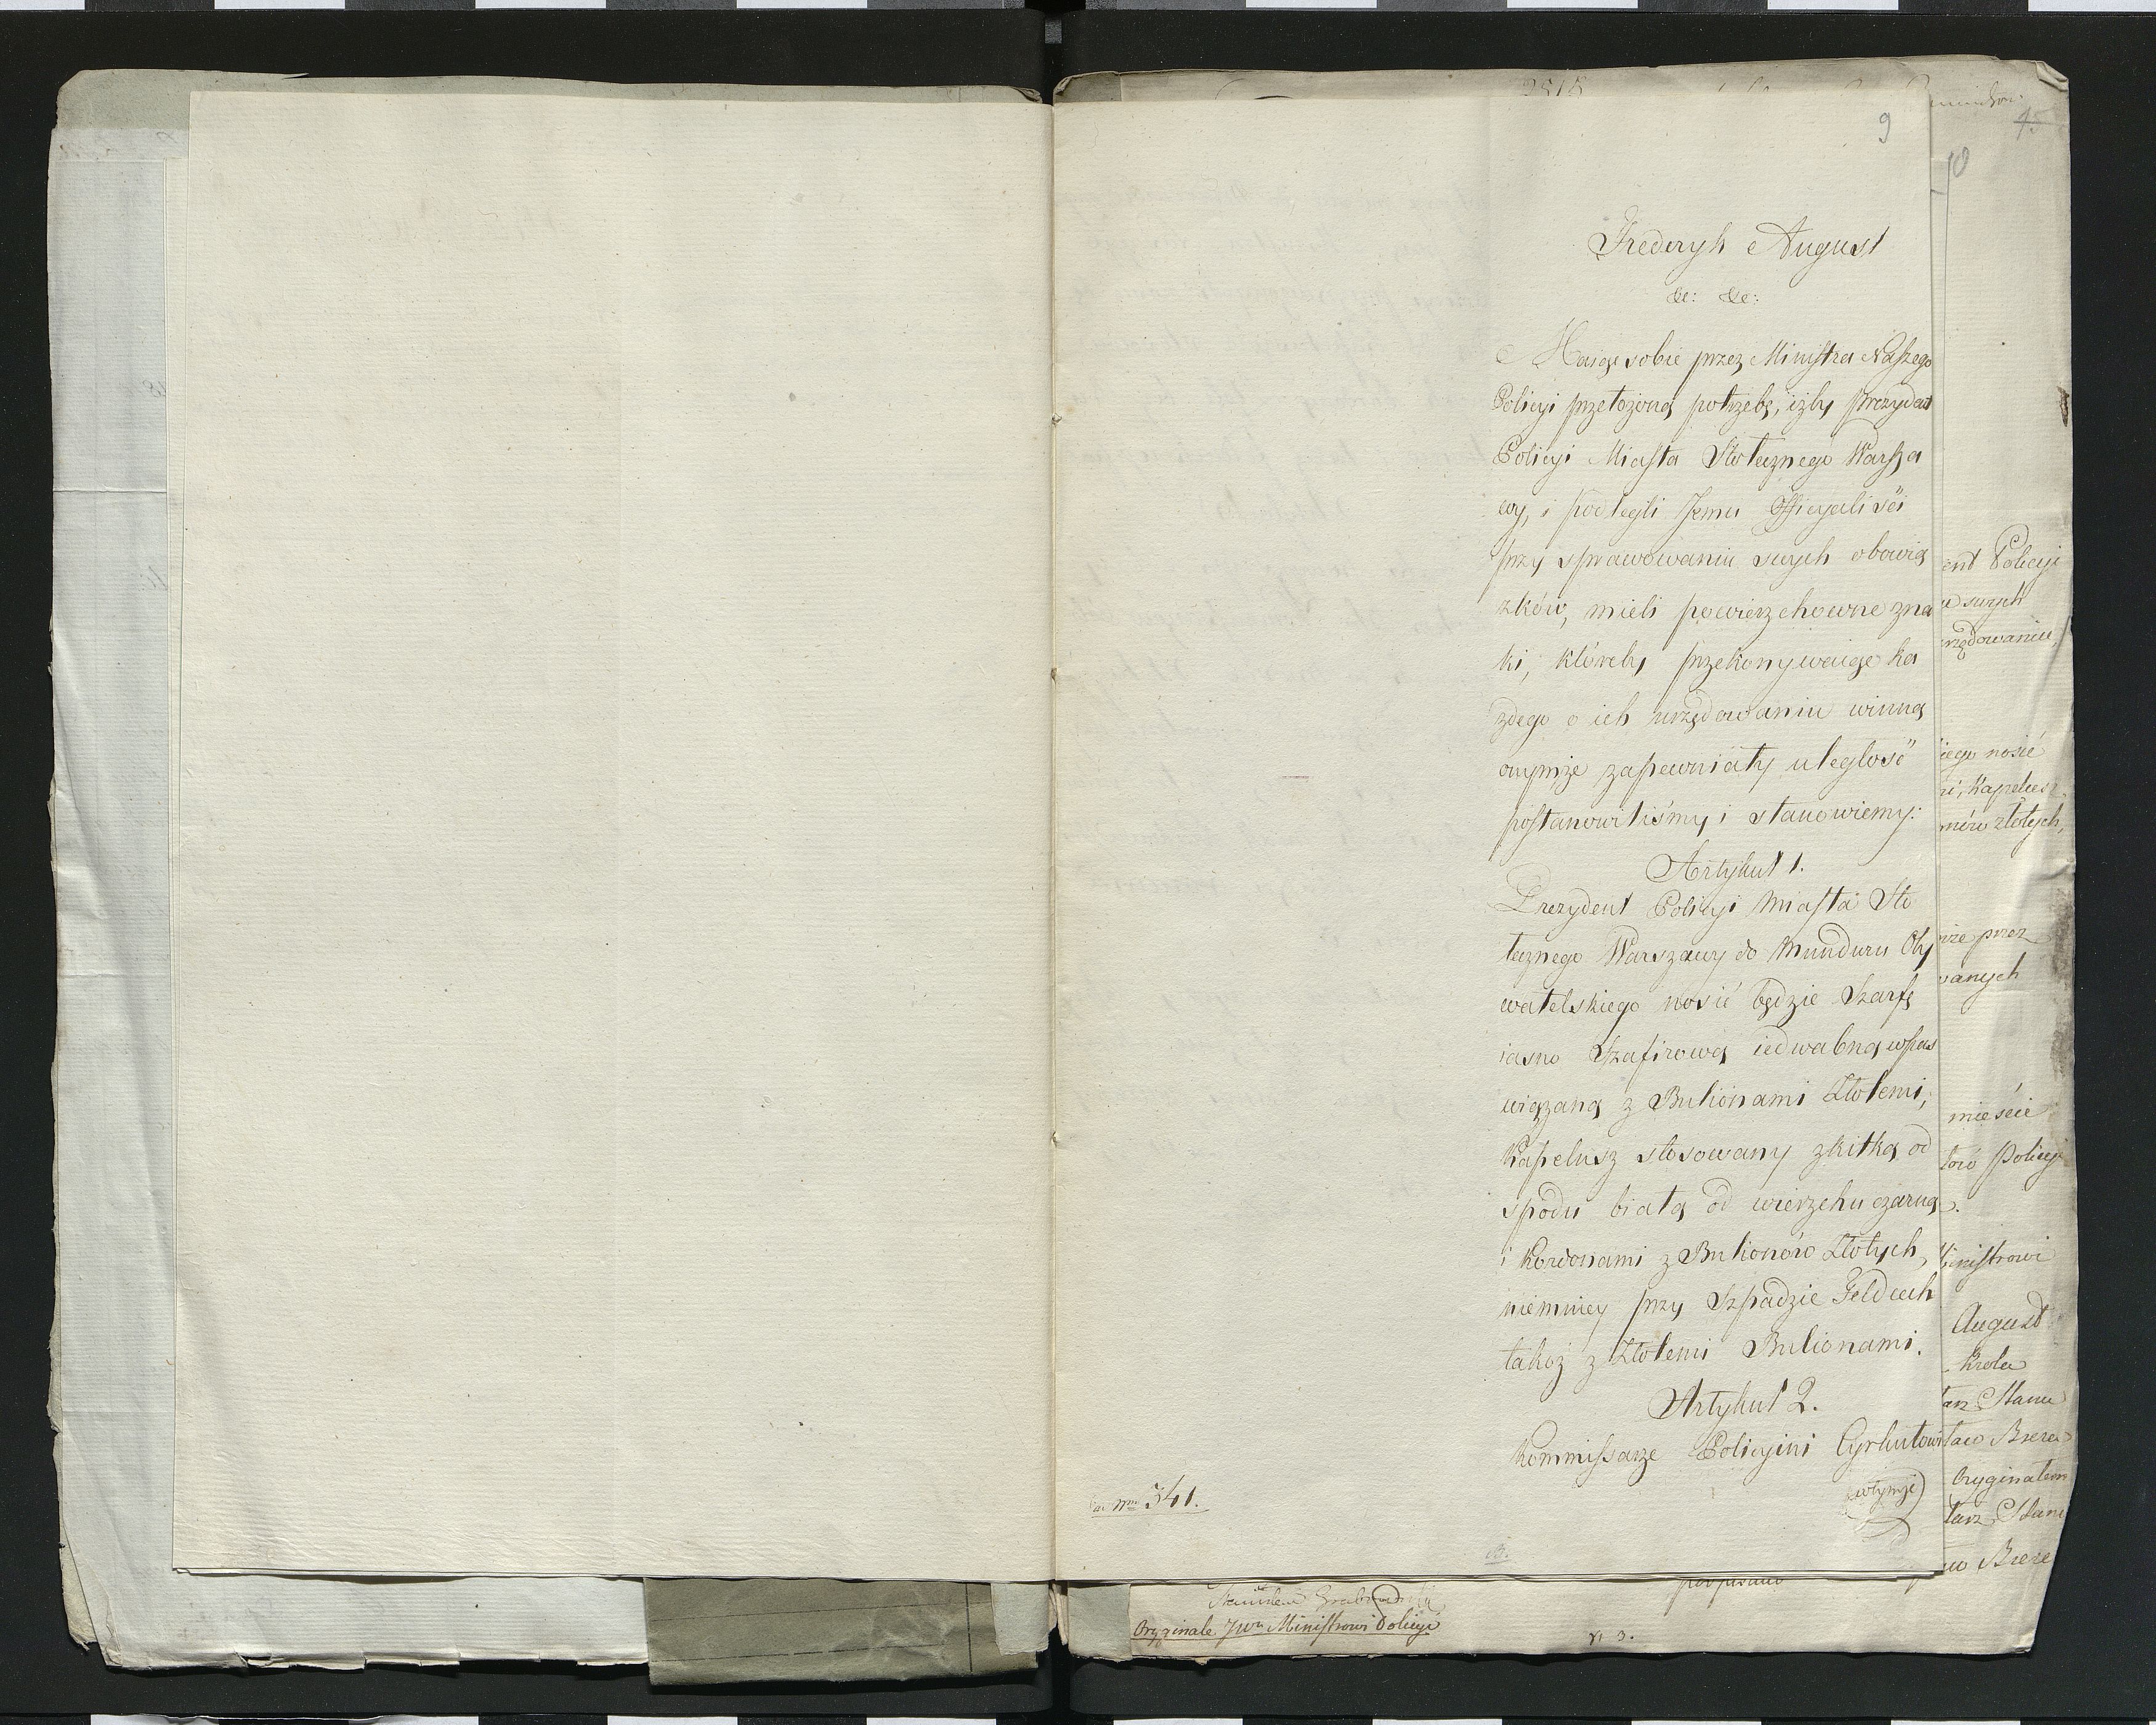 9
Frederyk August
&c: &c:
Maiąc sobie przez Ministra Naszego
Policyi przełożoną potrzebę, iżby Prezydent
Policyi Miasta Stołecznego Warsza
wy, i podlegli Jemu Officyaliści
przy sprawowaniu swych obowią
zków, mieli powierzchowne zna
ki, któreby przekonywaiąc ka
żdego o ich urzędowaniu winną
onymże zapewniały uległość
postanowiliśmy i stanowiemy:
Artykuł 1.
Prezydent Policyi Miasta Sto
łecznego Warszawy do Munduru Oby
watelskiego nosić będzie Szarfę
iasno Szafirową iedwabną w pas
wiązaną z Bulionami Złotemi,
Kapelusz stosowany z kitką od
spodu białą od wierzchu czarną
i Kordonami z Bulionów Złotych,
niemniey przy Szpadzie Feldcech
takoż z Złotemi Bulionami.
Artykuł 2.
Kommissarze Policyini Cyrkułowi
w tymże
341.
10
ent Policyi
swych
rzędowaniu,
iego nosić
ni, Kapelusz
nów złotych,
że przez
wanych
mieście
tów Policyi
Ministrowi
August
Krola
arz Stanu
ław Breza
Oryginałem
tarz Stanu
Breza
Oryginale JWu Ministrowi Policyi
N 3.